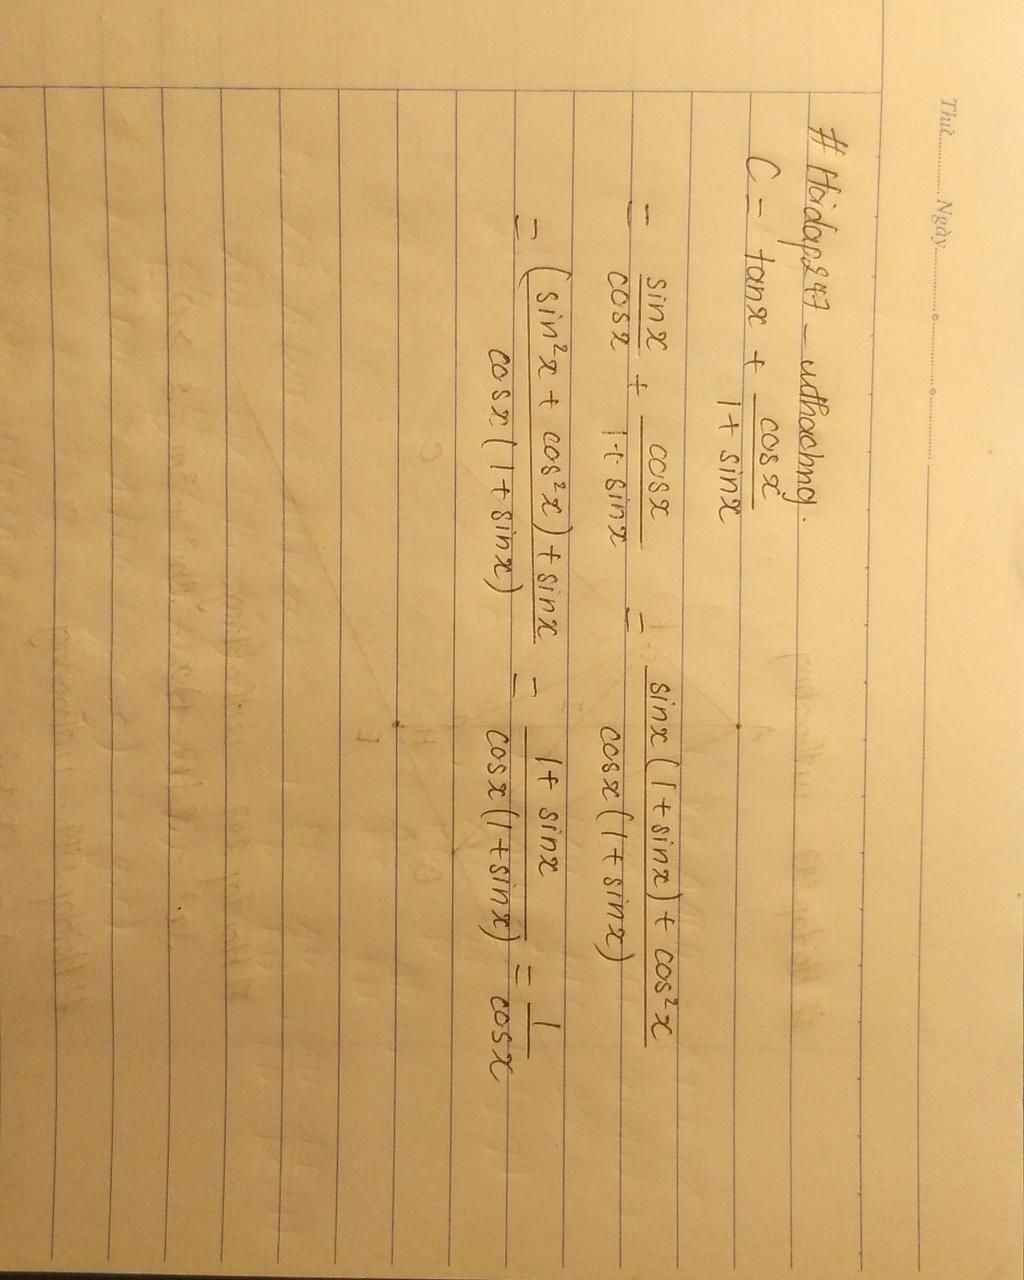 Thứ............ Ngày............
# Hoidap247 _ uthachng.
C = tanx + cosx / 1 + sinx
= sinx / cosx + cosx / 1 + sinx = sinx(1 + sinx) + cos²x / cosx(1 + sinx)
= (sin²x + cos²x) + sinx / cosx(1 + sinx) = 1 + sinx / cosx(1 + sinx) = 1 / cosx
A
H
B
C